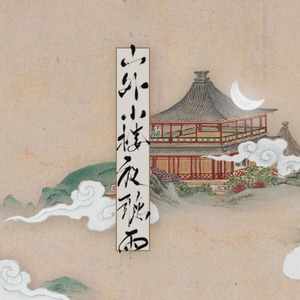 山外小楼夜听雨